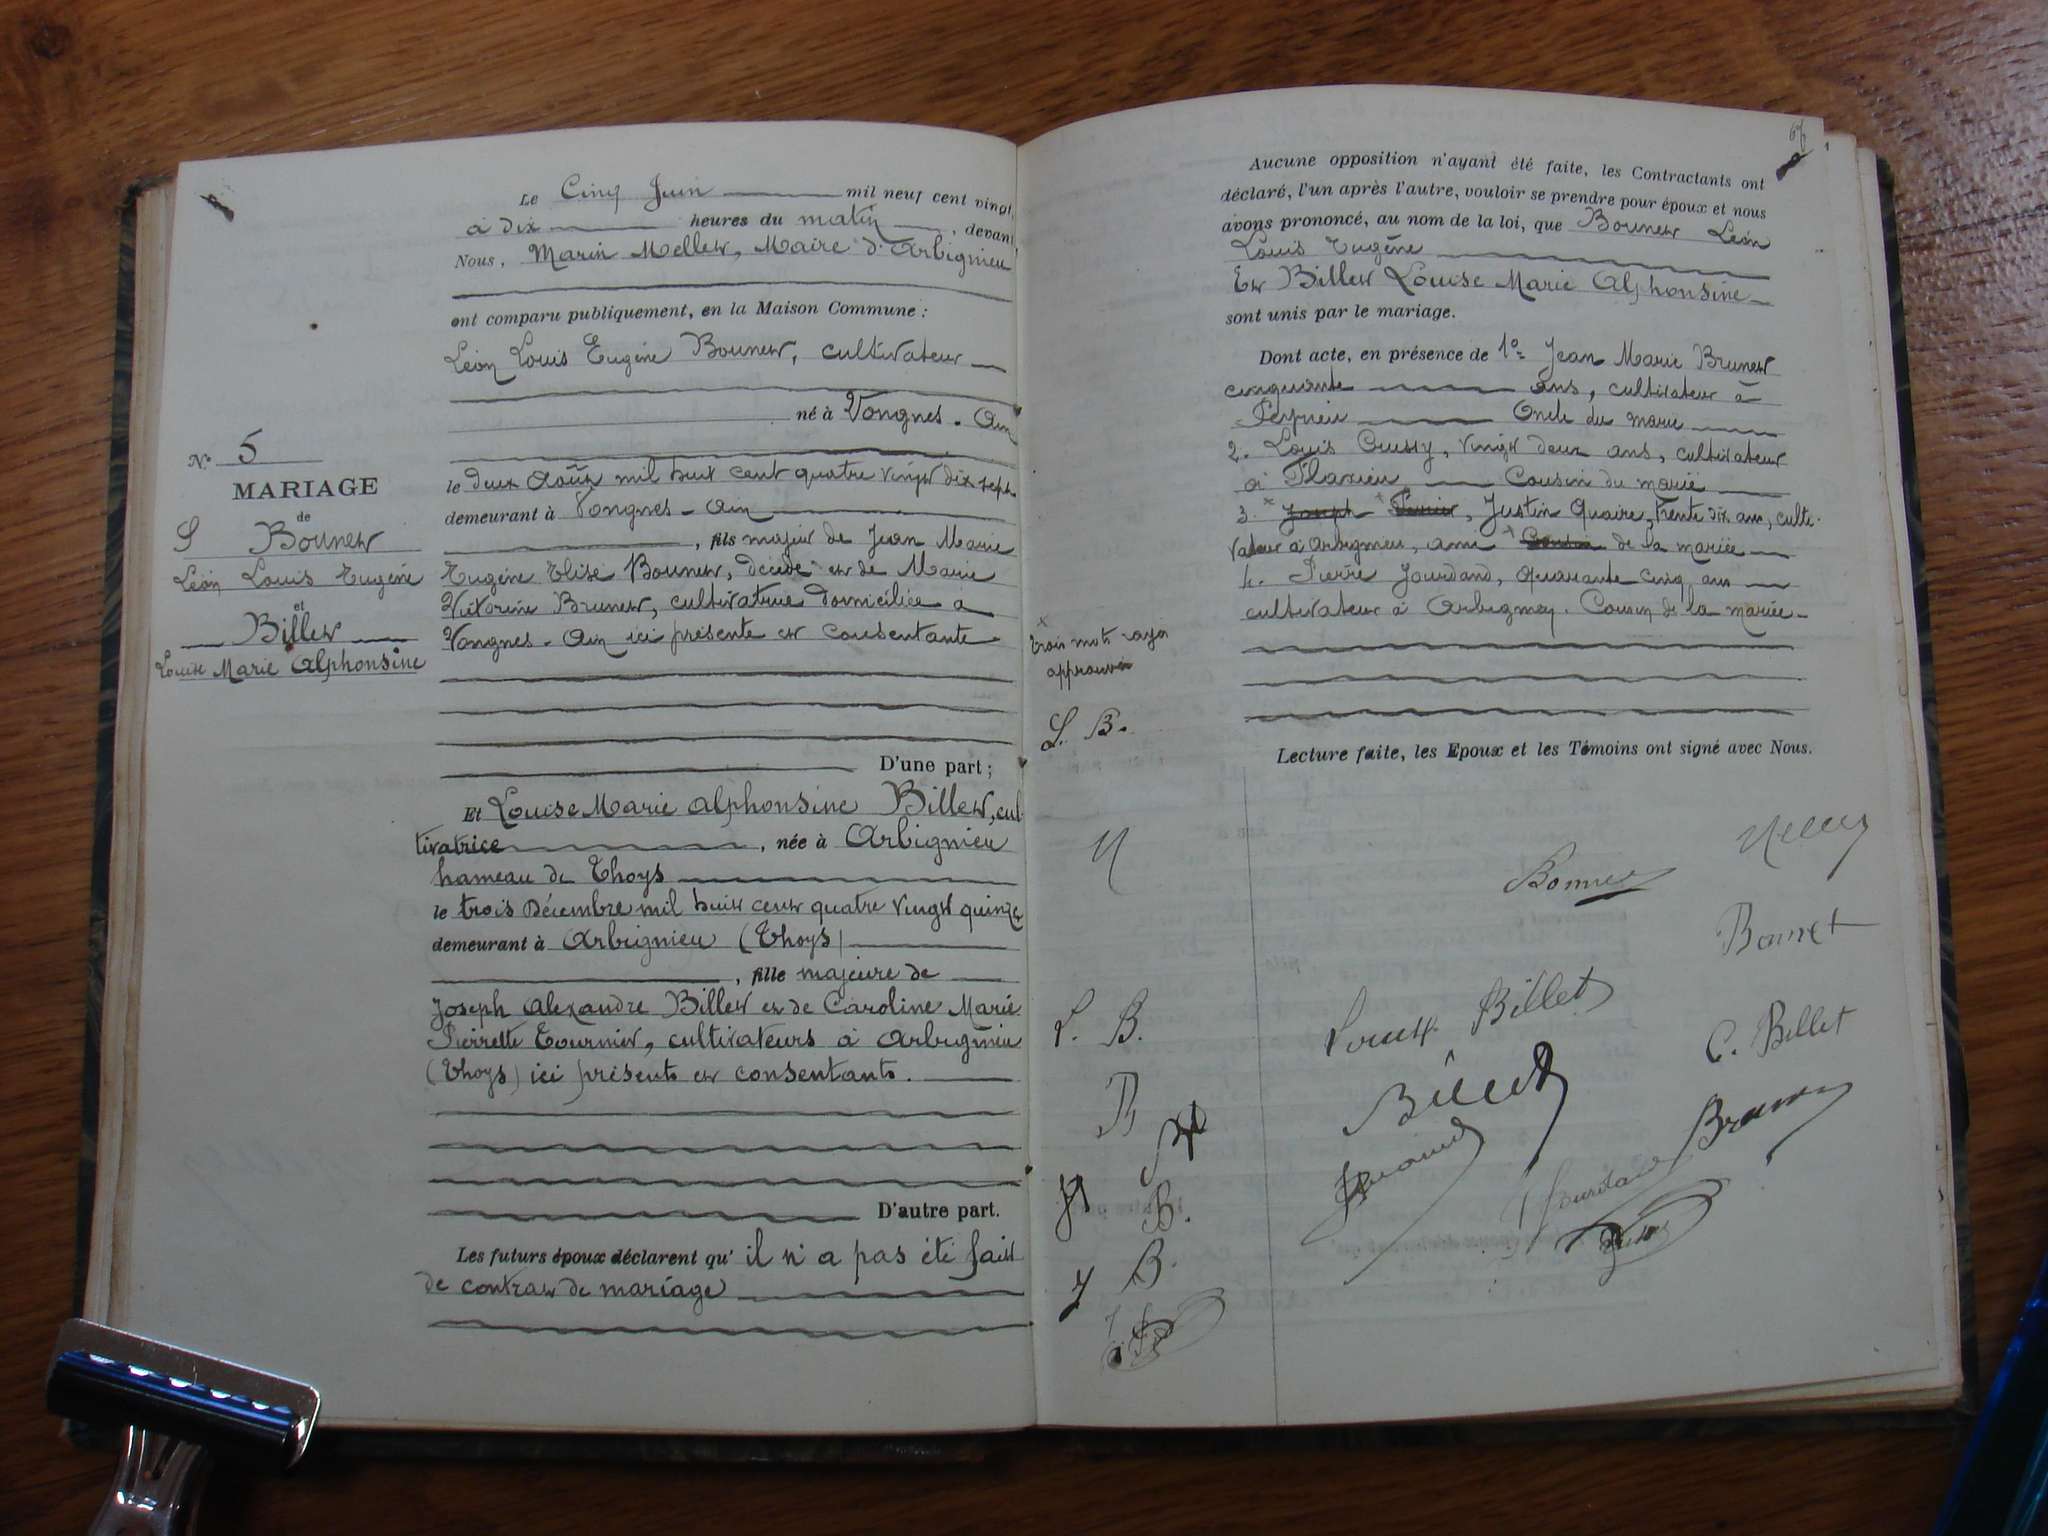 Le Cinq Juin mil neuf cent vingt
à dix heures du matin, devant
Nous, Marin Mellet, Maire d'Arbignieu
ont comparu publiquement, en la Maison Commune :
Léon Louis Eugène Bounet, cultivateur
né à Vongnes - Ain
le deux Août mil huit cent quatre vingt dix sept
demeurant à Vongnes - Ain
, fils majeur de Jean Marie
Eugène Elisé Bounet, décédé et de Marie
Victorine Brunet, cultivatrice domiciliée à
Vongnes - Ain ici présente et consentante
D'une part ;
Et Louise Marie Alphonsine Billet, cul-
tivatrice, née à Arbignieu
hameau de Thoys
le trois Décembre mil huit cent quatre vingt quinze
demeurant à Arbignieu (Thoys)
, fille majeure de
Joseph Alexandre Billet et de Caroline Marie
Pierrette Tournier, cultivateurs à Arbignieu
(Thoys) ici présents et consentants.
D'autre part.
Les futurs époux déclarent qu'il n'a pas été fait
de contrat de mariage
N° 5
MARIAGE
de
Bounet
Léon Louis Eugène
et
Billet
Louise Marie Alphonsine
Aucune opposition n'ayant été faite, les Contractants ont
déclaré, l'un après l'autre, vouloir se prendre pour époux et nous
avons prononcé, au nom de la loi, que Bounet Léon
Louis Eugène
Et Billet Louise Marie Alphonsine
sont unis par le mariage.
Dont acte, en présence de 1° Jean Marie Brunet
cinquante ans, cultivateur à
Peyrieu Oncle du marié
2. Louis Cussy, vingt deux ans, cultivateur
à Flaxieu Cousin du marié
3. Joseph, Justin Quaire, Trente dix ans, culti-
vateur à Arbignieu, ami Cousin de la mariée
4. Pierre Jourdand, quarante cinq ans
cultivateur à Arbignieu. Cousin de la mariée.
trois mots rayés
approuvés
L. B.
Lecture faite, les Epoux et les Témoins ont signé avec Nous.
Bonnet
Louise Billet
L. B.
C. Billet
Billet
B.
B.